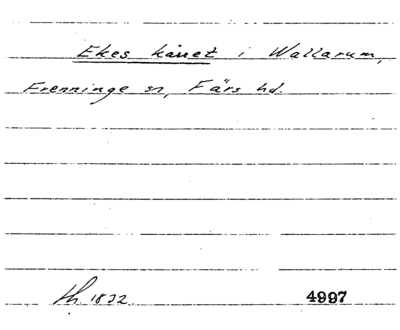 Ekes kärret i Wallarum,
Frenninge sn, Färs hd.
th. 1832. 4997